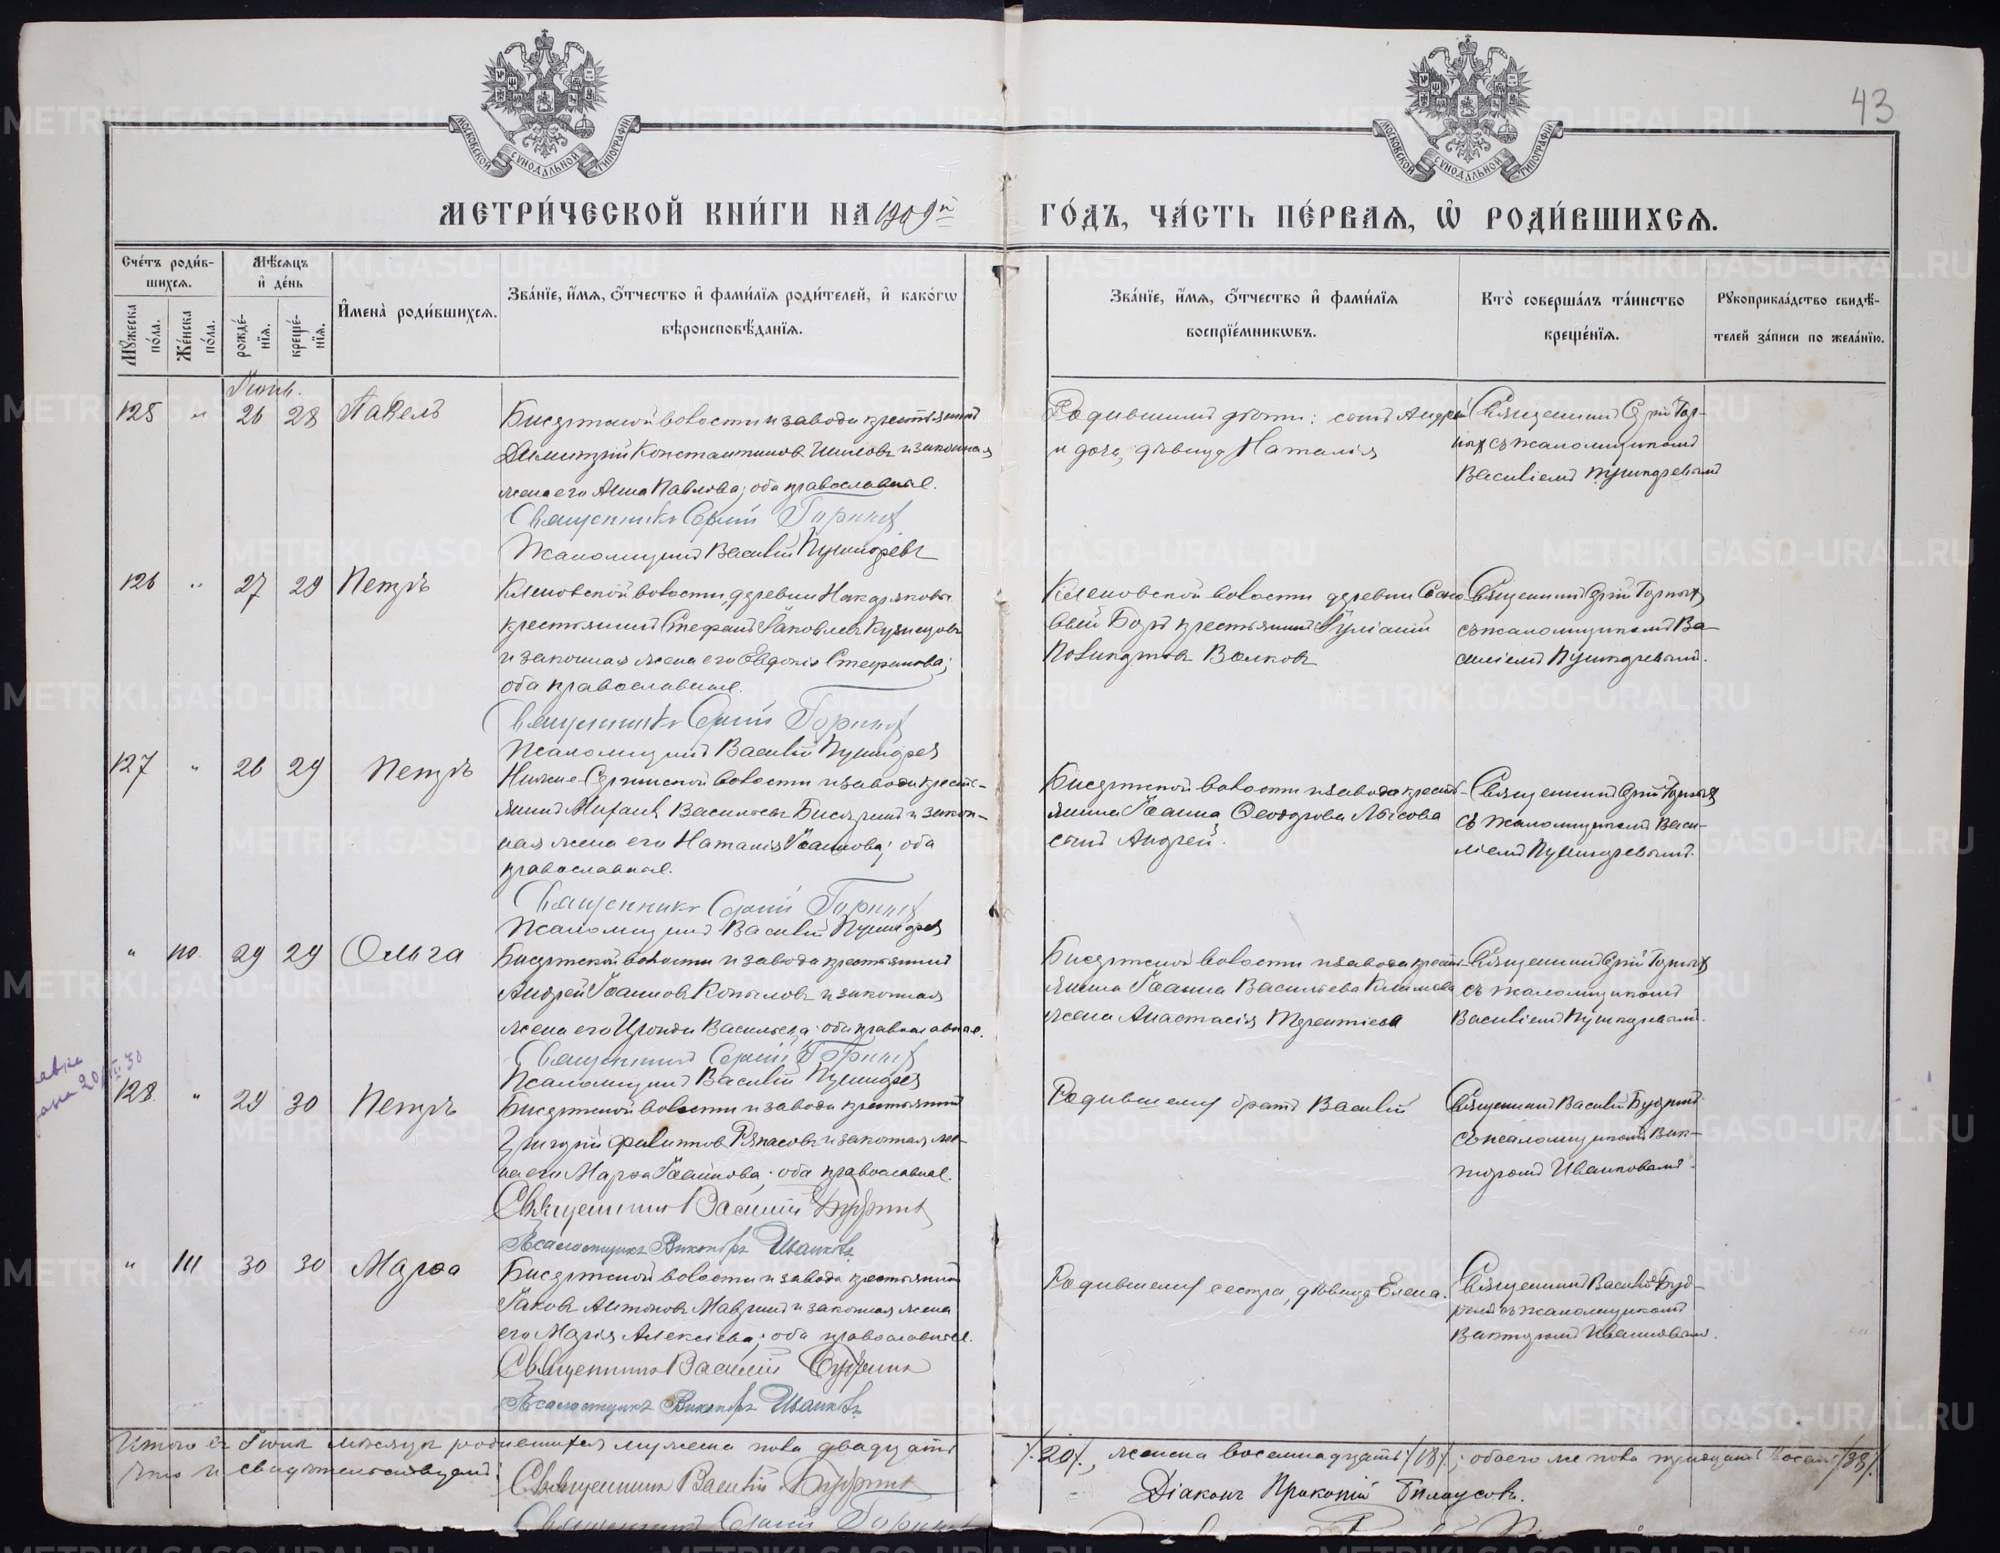 43
МОСКОВСКОЙ СѴНОДАЛЬНОЙ ТИПОГРАФІИ
МОСКОВСКОЙ СѴНОДАЛЬНОЙ ТИПОГРАФІИ
МЕТРИ́ЧЕСКОЙ КНИ́ГИ НА 1909й ГО́ДЪ, ЧА́СТЬ ПЕ́РВАѦ, Ѡ҆ РОДИ́ВШИХСѦ.
Счетъ родившихсѧ.
Мꙋжеска пола.
Женска пола.
Мѣсѧцъ и день
рожденїѧ.
крещенїѧ.
Имена родившихсѧ.
Званїе, имѧ, отчество и фамилїѧ родителей, и какогѡ
вѣроисповѣданїѧ.
Званїе, имѧ, отчество и фамилїѧ
воспрїемникѡвъ.
Кто совершалъ таинство
крещенїѧ.
Рꙋкоприкладство свидѣ-
телей записи по желанїю.
Іюнь.
125 " 26 28 Павелъ
Бисертской волости и завода крестьянинъ
Димитрій Константиновъ Шиловъ и законная
жена его Анна Павлова; оба православные.
Священникъ Сергій Горныхъ
Псаломщикъ Василій Пушкаревъ
Родившимся дѣти: сынъ Андрей
и дочь, дѣвица Наталія
Священникъ Сергій Гор-
ныхъ съ псаломщикомъ
Василіемъ Пушкаревымъ
126 " 27 29 Петръ
Кленовской волости, деревни Накаряковы
крестьянинъ Стефанъ Іаковлевъ Кузнецовъ
и законная жена его Евдокія Стефанова;
оба православные.
Священникъ Сергій Горныхъ
Псаломщикъ Василій Пушкаревъ
Кленовской волости деревни
Боръ крестьянинъ Іуліанъ
Волковъ
Священникъ Сергій Горныхъ
съ псаломщикомъ Ва-
силіемъ Пушкаревымъ.
127 " 26 29 Петръ
Нижне-Сергинской волости и завода кресть-
янинъ Михаилъ Васильевъ и закон-
ная жена его Наталія Іоаннова; оба
православные.
Священникъ Сергій Горныхъ
Псаломщикъ Василій Пушкаревъ
Бисертской волости и завода кресть-
янина Іоанна Ѳеодорова Лысова
сынъ Андрей.
Священникъ Сергій Горныхъ
съ псаломщикомъ Васи-
ліемъ Пушкаревымъ.
" 110 29 29 Ольга
Бисертской волости и завода крестьянинъ
Андрей Іоанновъ Копыловъ и законная
жена его Васильева; оба православные.
Священникъ Сергій Горныхъ
Псаломщикъ Василій Пушкаревъ
Бисертской волости и завода кресть-
янина Іоанна Васильева Климова
жена Анастасія Терентіева
Священникъ Сергій Горныхъ
съ псаломщикомъ
Василіемъ Пушкаревымъ.
128 " 29 30 Петръ
Бисертской волости и завода крестьянинъ
Григорій Филипповъ и законная же-
на его Марѳа Іоаннова; оба православные.
Священникъ Василій
Псаломщикъ Викторъ Ивановъ
Родившемуся братъ Василій
Священникъ Василій
съ псаломщикомъ Вик-
торомъ Ивановымъ.
" 111 30 30 Марѳа
Бисертской волости и завода крестьянинъ
Іаковъ Антоновъ Мавринъ и законная жена
его Марія Алексіева; оба православные.
Священникъ Василій
Псаломщикъ Викторъ Ивановъ
Родившемуся сестра, дѣвица Елена.
Священникъ Василій
съ псаломщикомъ
Викторомъ Ивановымъ.
Итого въ Іюнѣ мѣсяцѣ родившихся мужеска пола двадцать /20/, женска восемнадцать /18/; обоего же пола тридцать восемь /38/.
что и свидѣтельствуемъ:
Священникъ Василій
Діаконъ Прокопій Билоусовъ.
Священникъ Сергій Горныхъ